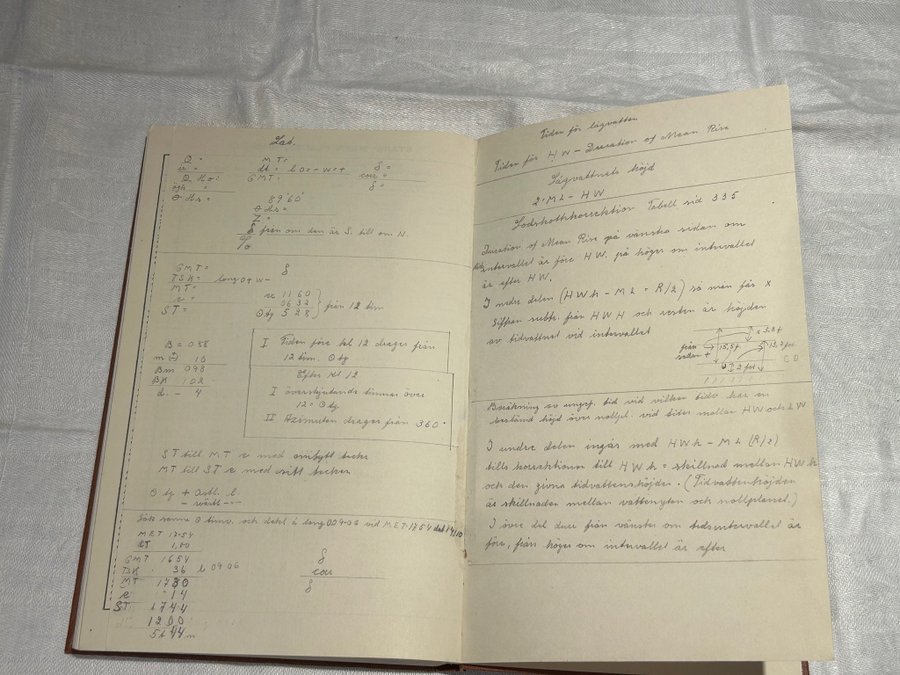 Lat.
MT =
dt = l O+ - W+
GMT:
δ =
corr =
δ =
Θ Ho:
Θ Hs =
89°60'
Θ Hs =
Z =
δ från om den är S. till om N.
φ
GMT =
δ
TSk = long O+ W-
MT =
e =
ST =
e 11 60
06 32
Θ tg 5 28
från 12 tim
B = 088
m 10
Bm 098
Bk 102
d. - 4
I Tiden före kl 12 drages från
12 tim. Θ tg
Efter kl 12
I överskjutande timmar över
12 = Θ tg
II Azimuten drages från 360°
ST till MT e med ombytt tecken
MT till ST e med sitt tecken
Θ tg + Ostl. l
- västl - " -
Sök sanna Θ timv. och dekl å long O 09-06 vid MET 17-54 den 14/10
MET 17-54
1,00
GMT 16 54
TSk 36 l O 09 06
MT 17 30
e 14
ST 17 44
12 00
5 t 44 m
δ
corr
δ
Tiden för lågvatten
Tiden för HW - Duration of Mean Rise
Lågvattnets höjd
2·ML - HW
Lodskottkorrektion Tabell sid 335
Duration of Mean Rise på vänstra sidan om
intervallet är före HW. på höger om intervallet
är efter HW.
I nedre delen (HWh - ML = R/2) så man får x
Siffran subtr. från HWH och resten är höjden
av tidvattnet vid intervallet
från
sidan +
15,5 f
13,2 fot
2 fot
C D
Beräkning av ungef. tid vid vilken tidv. har en
bestämd höjd över nollpl. vid tider mellan HW och LW
I undre delen ingår med HWh - ML (R/2)
tills korrektionen till HWh = skillnad mellan HWh
och den givna tidvattenshöjden. (Tidvattenhöjden
är skillnaden mellan vattenytan och nollplanet.)
I övre del över från vänster om tidsintervallet är
före, från höger om intervallet är efter